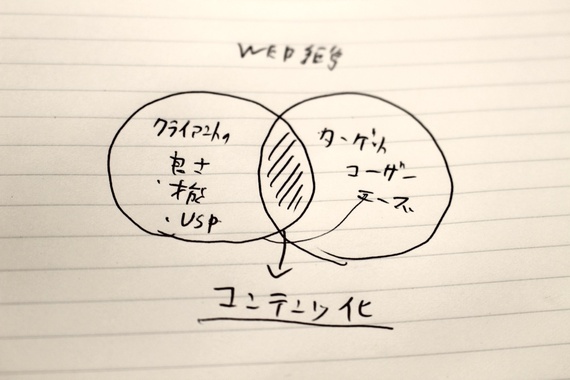 WEB経営
クライアントの
良さ
・才能
・USP
ターゲット
ユーザー
ニーズ
コンテンツ化